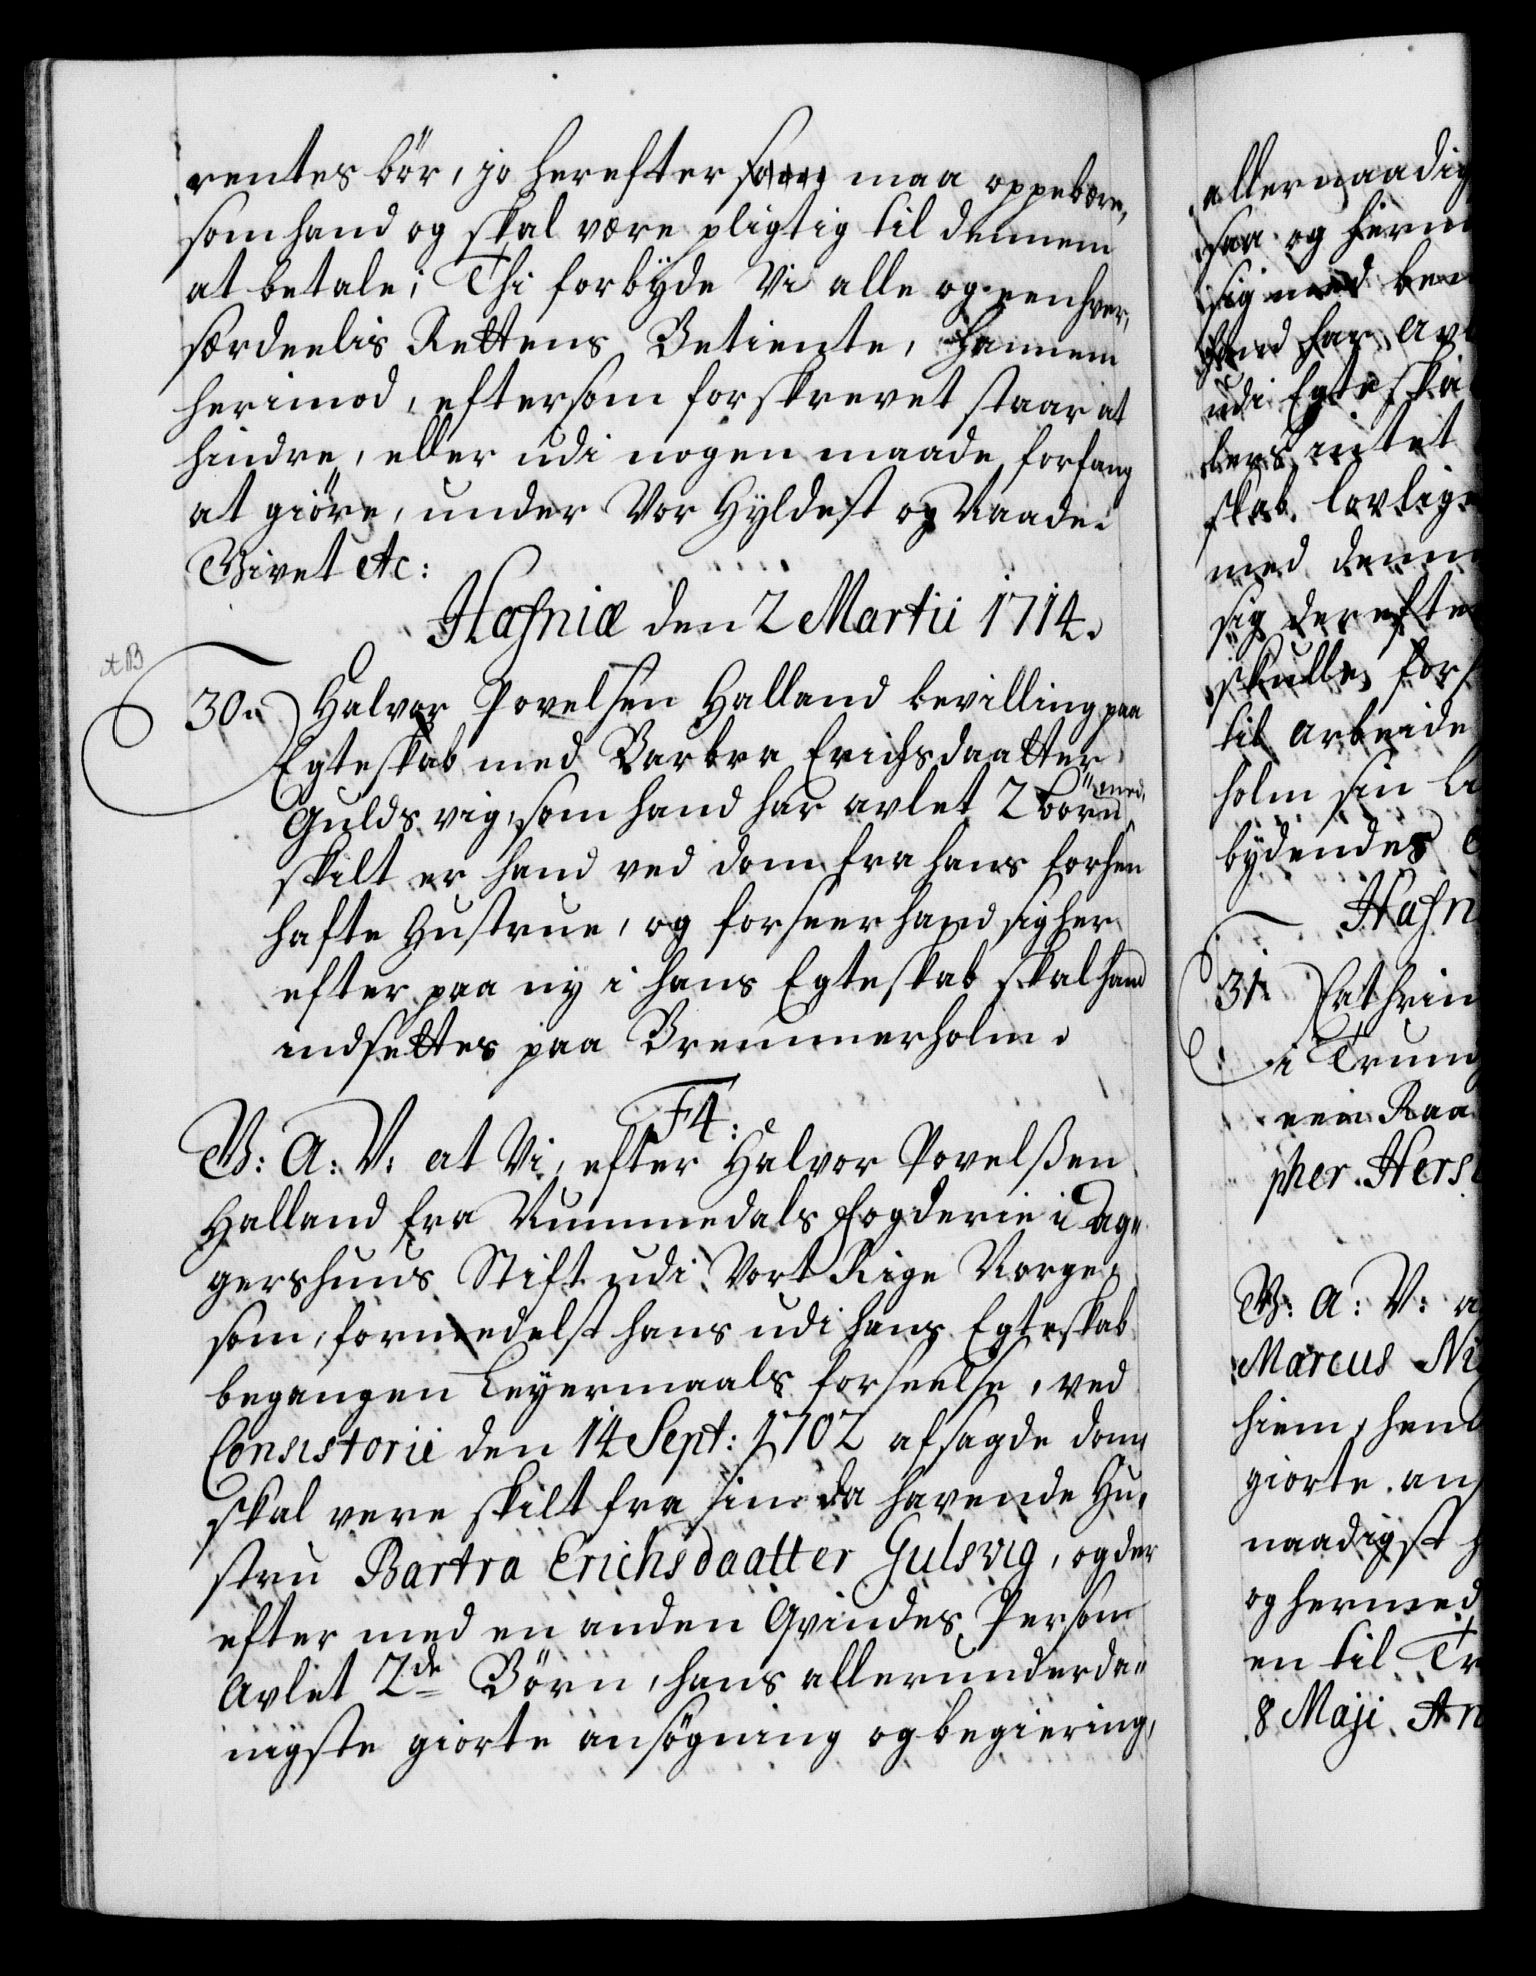 rentes bör, jo herefter maa oppebære,
som hand og skal være pligtig til dennem
at betale; Thi forbÿde Vi alle og eenhver,
særdeelis Rettens Betiente, hannem
herimod, eftersom forskrevet staar at
hindre, eller udi nogen maade forfang
at giöre, under Vor Hÿldest og Naade.
Givet etc:
Hafniæ den 2 Martii 1714.
AB
30. Halvor Povelsen Halland bevilling paa
Egteskab med Barbra Erichsdaatter
Guldsvig, som hand har avlet 2 born med,
skilt er hand ved dom fra hans forhen
hafte Hustrue, og forseer hand sig her
efter paa ny i hans Egteskab skal hand
indsettes paa Bremmerholm.
F4:
W: A: V: at Vi, efter Halvor Povelsßen
Halland fra Nummedals fogderie i Ag„
gershuus Stift udi Vort Rige Norge,
som, formedelst hans udi hans Egteskab
begangen Leÿermaals forseelse, ved
Consistorii den 14 Sept: 1702 afsagde dom
skal vere skilt fra sin da havende Hu„
stru Bartra Erichsdaatter Gulsvig, og der
efter med en anden Qvindes Person
Avlet 2de Börn, hans allerunderda„
nigste giorte ansögning og begiering,
allernaadig
saa og herm
sig med ben
hand har avl
udi Egteska
lers intet
skab lovlige
med denn
sig derefte
skulle for
til arbeide
holm sin li
bÿdendes
Hafn
31. Cathrin
i Trun
een Raa
pher Hers
W: A: V: a
Marcus Ni
hiem, hen
giorte an
naadigst
og hermed
en til Tr
8 Maji An